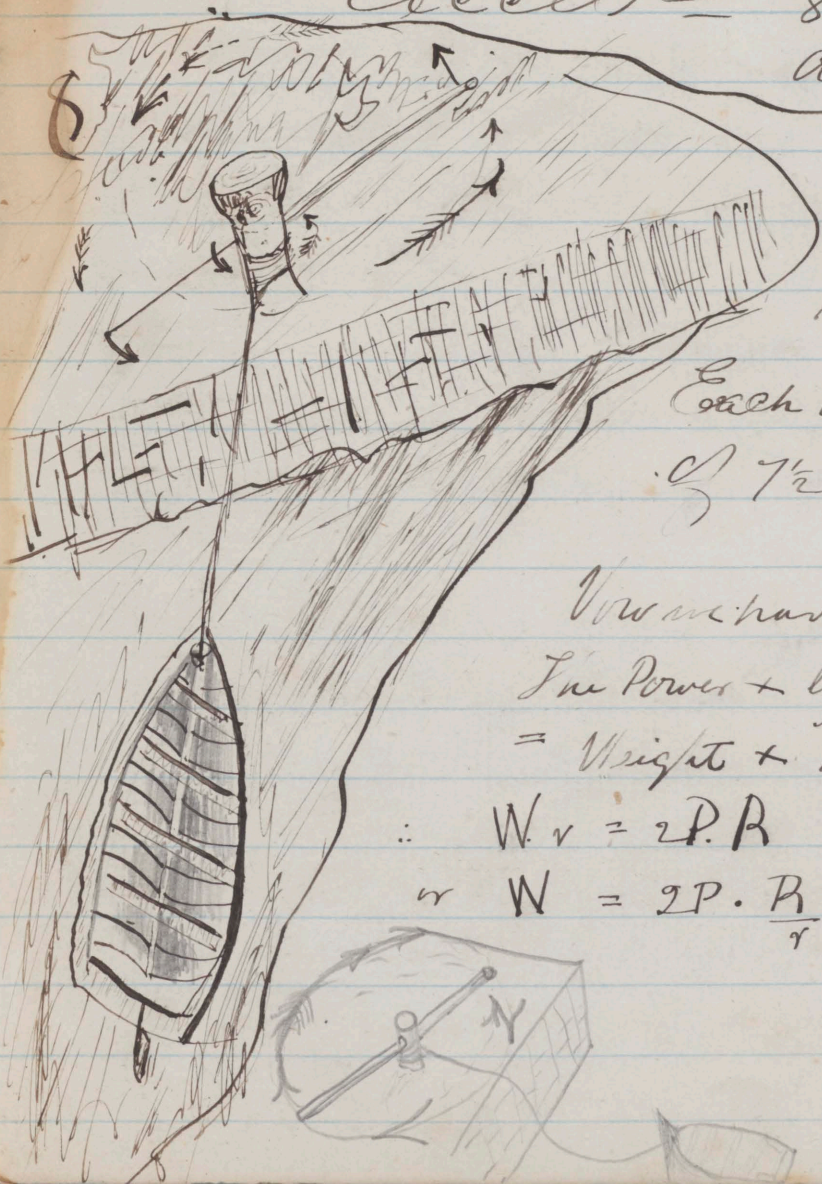 8
Each
of 7½
Now we hav
The Power × l
= Weight ×
∴ W. r = 2P. R
or W = 2P. R/r